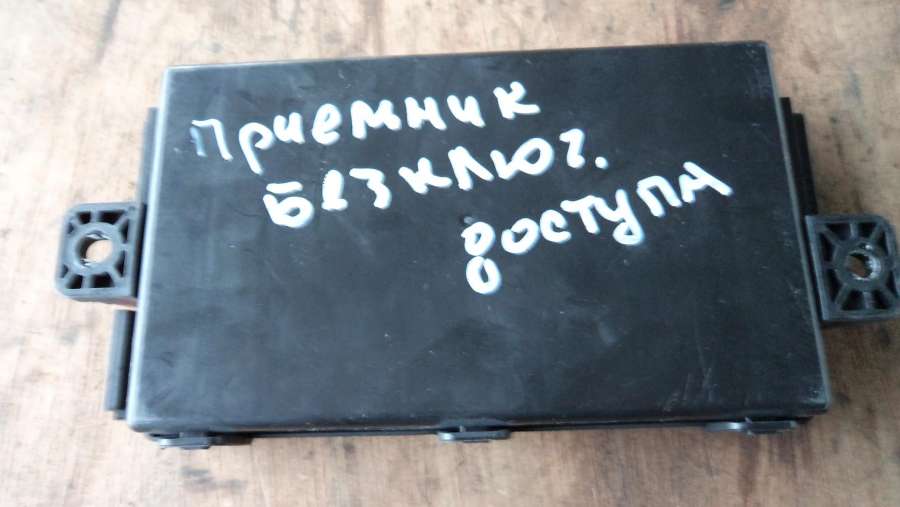 Приемник
Безключ.
доступа